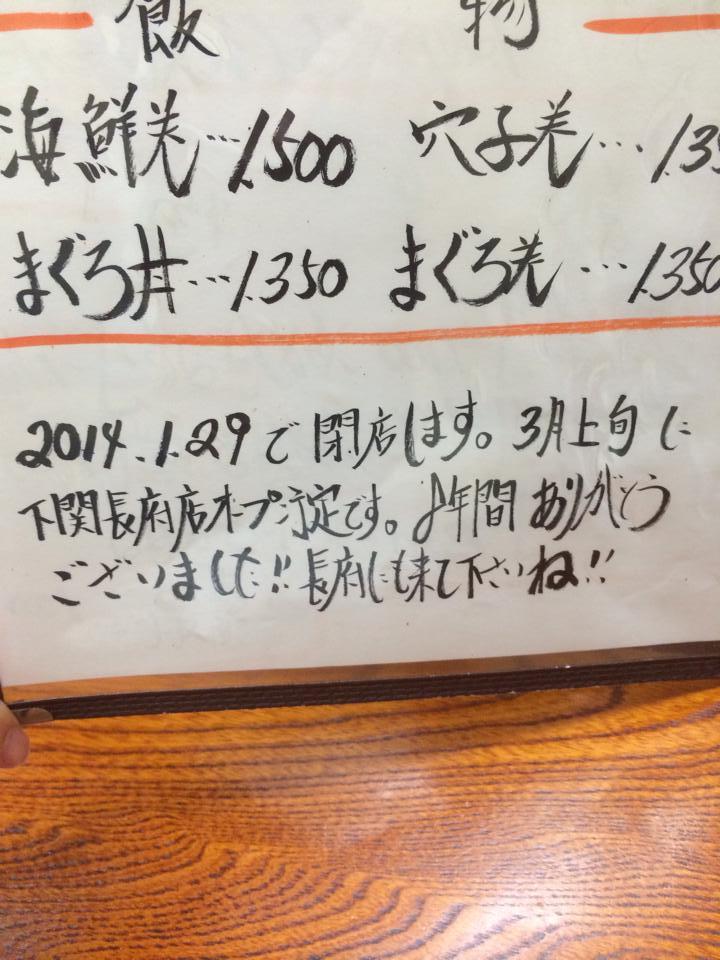 飯 物
海鮮巻…1.500 穴子巻…1.35
まぐろ丼…1.350 まぐろ巻…1.350
2014.1.29で閉店します。3月上旬に
下関長府店オープン予定です。8年間ありがとう
ございました!!長府にも来て下さいね!!